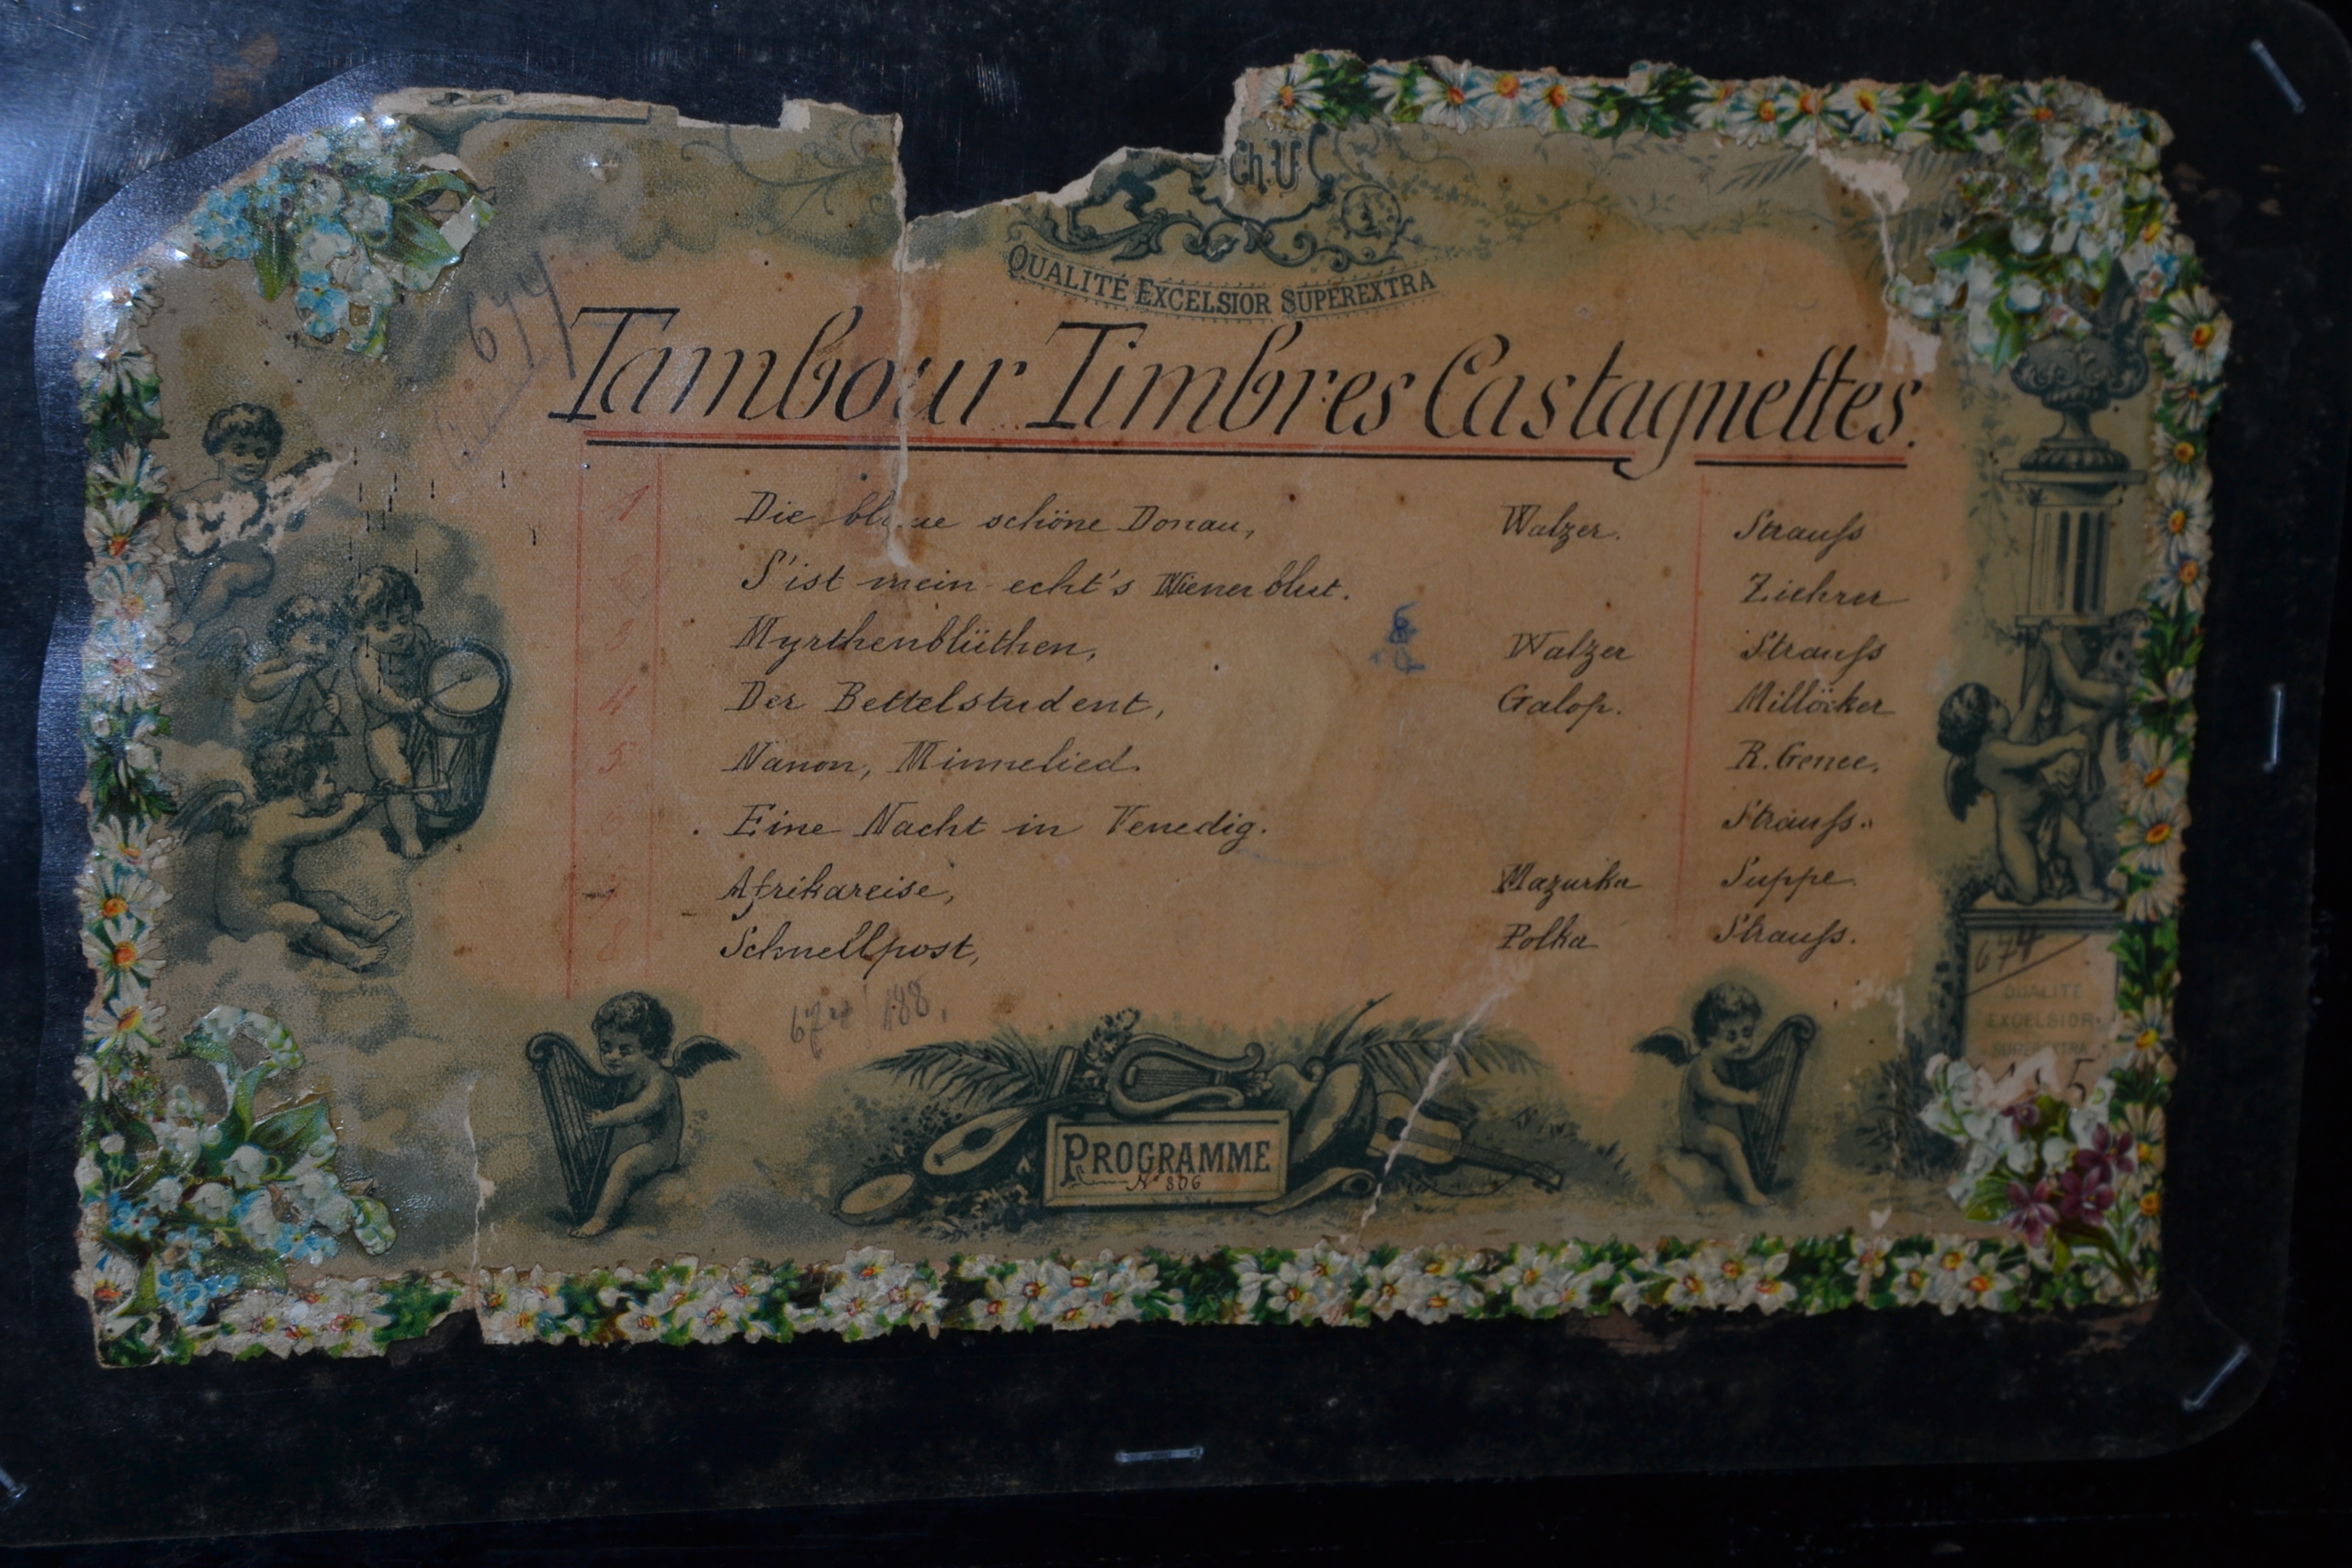 Ch. U
QUALITÉ EXCELSIOR SUPEREXTRA
677
Tambour Timbres Castagnettes.
1 Die blaue schöne Donau, Walzer. Strauss
2 S'ist mein echt's Wienerblut. Ziehrer
3 Myrthenblüthen, Walzer Strauss
4 Der Bettelstudent, Galop. Millöcker
5 Nanon, Minnelied. R. Genee.
6 Eine Nacht in Venedig. Strauss.
7 Afrikareise, Mazurka Suppe.
8 Schnellpost, Polka Strauss.
188.
677
QUALITÉ
EXCELSIOR
SUPEREXTRA
5
PROGRAMME
No 806